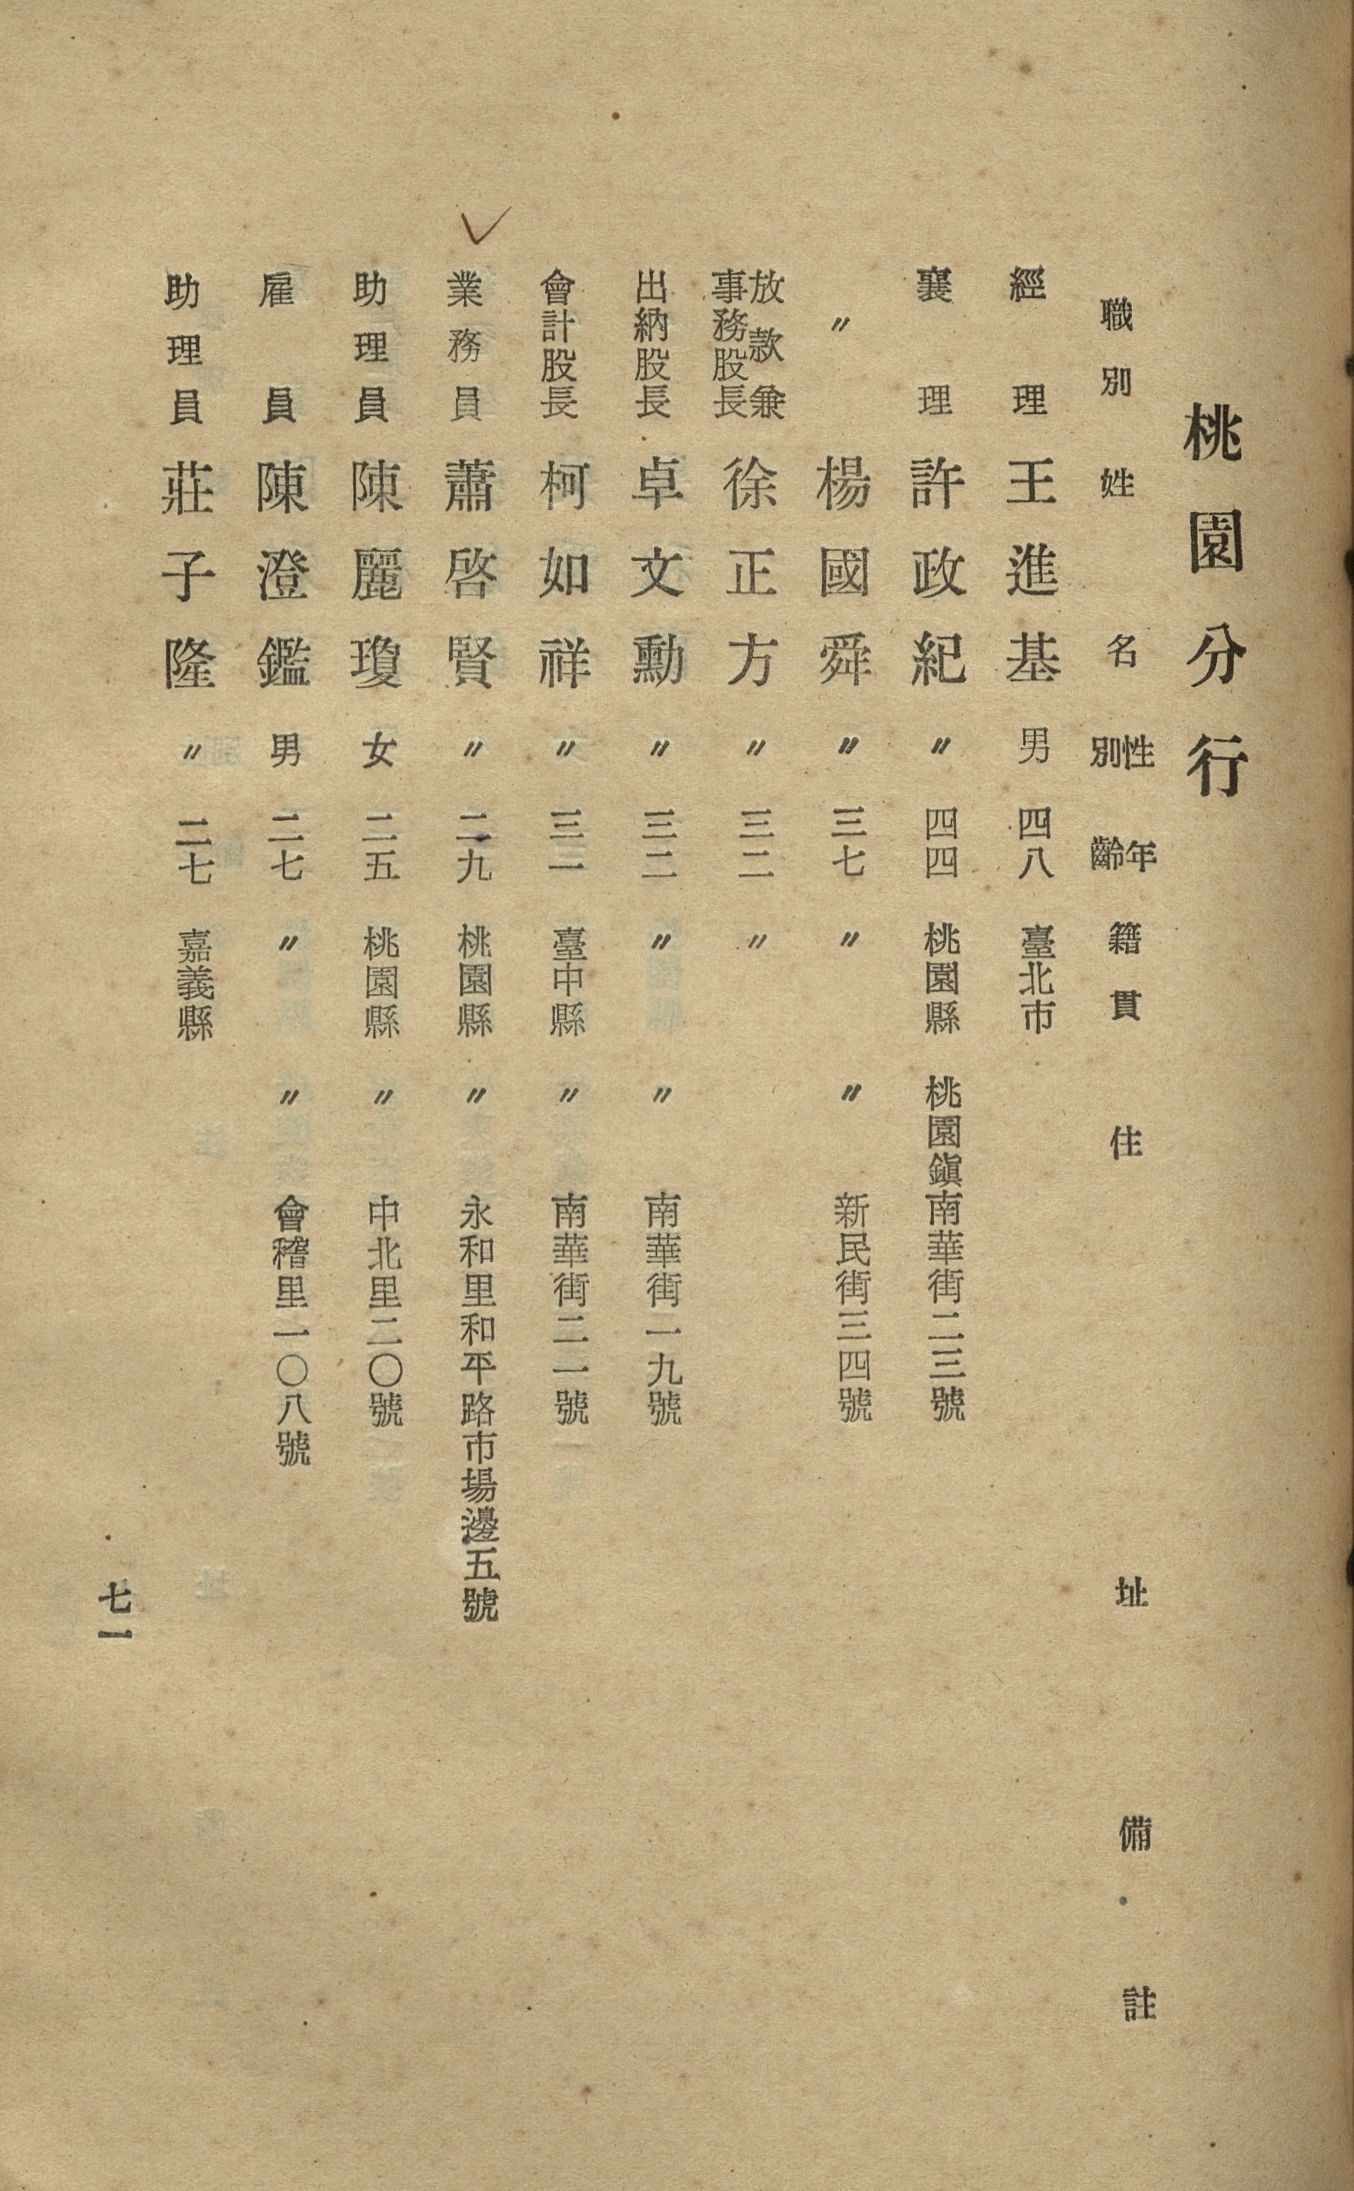 桃園分行
職別 姓名 性別 年齡 籍貫 住址 備註
經理 王進基 男 四八 臺北市
襄理 許政紀 〃 四四 桃園縣 桃園鎭南華街二三號
〃 楊國舜 〃 三七 〃 〃 新民街三四號
放款兼事務股長 徐正方 〃 三二 〃
出納股長 卓文勳 〃 三二 〃 〃 南華街一九號
會計股長 柯如祥 〃 三一 臺中縣 〃 南華街二一號
業務員 蕭啓賢 〃 二九 桃園縣 〃 永和里和平路市場邊五號
助理員 陳麗瓊 女 二五 桃園縣 〃 中北里二〇號
雇員 陳澄鑑 男 二七 〃 〃 會稽里一〇八號
助理員 莊子隆 〃 二七 嘉義縣
七一